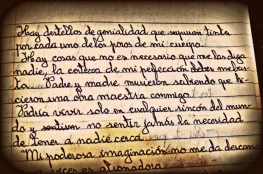 Hay destellos de genialidad que supuran tinta
por cada uno de los poros de mi cuerpo.
Hay cosas que no es necesario que me las diga
nadie, la certeza de mi perfección debe
Padre y madre murieron sabiendo que hi-
cieron una obra maestra conmigo.
Podría vivir solo en cualquier rincón del mun-
do y no sentir jamás la necesidad
de tener a nadie cerca
"Mi poderosa imaginación no me da descan-
veces es